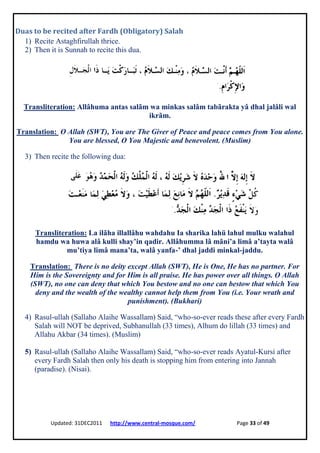 Duas to be recited after Fardh (Obligatory) Salah
1) Recite Astaghfirullah thrice.
2) Then it is Sunnah to recite this dua.
اَللّٰهُمَّ أَنْتَ السَّلَامُ ، وَمِنْكَ السَّلَامُ ، تَبَارَكْتَ يَا ذَا الْجَلَالِ
وَالْإِكْرَامِ.
Transliteration: Allāhuma antas salām wa minkas salām tabārakta yâ dhal jalāli wal
ikrām.
Translation: O Allah (SWT), You are The Giver of Peace and peace comes from You alone.
You are blessed, O You Majestic and benevolent. (Muslim)
3) Then recite the following dua:
لَا إِلٰهَ إِلَّا اللهُ وَحْدَهُ لَا شَرِيْكَ لَهُ ، لَهُ الْمُلْكُ وَلَهُ الْحَمْدُ وَهُوَ عَلَى
كُلِّ شَيْءٍ قَدِيْرٌ. اَللّٰهُمَّ لَا مَانِعَ لِمَا أَعْطَيْتَ ، وَلَا مُعْطِيَ لِمَا مَنَعْتَ
وَلَا يَنْفَعُ ذَا الْجَدِّ مِنْكَ الْجَدُّ.
Transliteration: La ilāha illallāhu wahdahu Ia sharika lahū lahul mulku walahul
hamdu wa huwa alā kulli shay'in qadir. Allāhumma lā mâni'a limâ a'tayta walā
mu'tiya limâ mana'ta, walâ yanfa-' dhal jaddi minkal-jaddu.
Translation: There is no deity except Allah (SWT), He is One, He has no partner. For
Him is the Sovereignty and for Him is all praise. He has power over all things. O Allah
(SWT), no one can deny that which You bestow and no one can bestow that which You
deny and the wealth of the wealthy cannot help them from You (i.e. Your wrath and
punishment). (Bukhari)
4) Rasul-ullah (Sallaho Alaihe Wassallam) Said, "who-so-ever reads these after every Fardh
Salah will NOT be deprived, Subhanullah (33 times), Alhum do lillah (33 times) and
Allahu Akbar (34 times). (Muslim)
5) Rasul-ullah (Sallaho Alaihe Wassallam) Said, "who-so-ever reads Ayatul-Kursi after
every Fardh Salah then only his death is stopping him from entering into Jannah
(paradise). (Nisai).
Updated: 31DEC2011 http://www.central-mosque.com/ Page 33 of 49